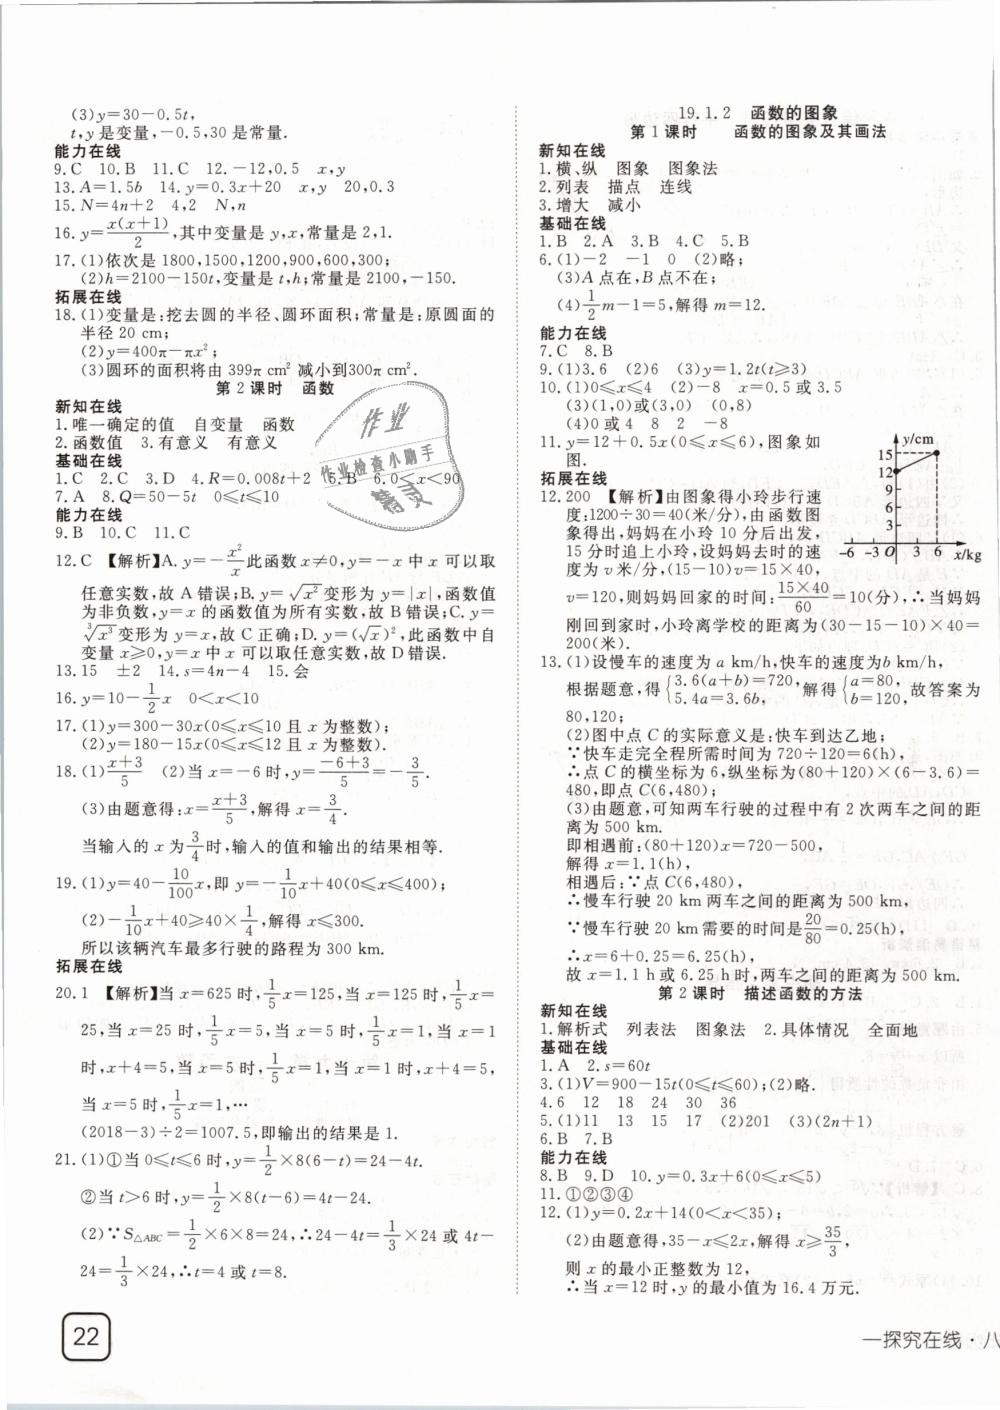 (3)y=30-0.5t,
t,y是变量,-0.5,30是常量.
能力在线
9.C 10.B 11.C 12.-12,0.5 x,y
13.A=1.5b 14.y=0.3x+20 x,y 20,0.3
15.N=4n+2 4,2 N,n
16.y=x(x+1)/2,其中变量是y,x,常量是2,1.
17.(1)依次是1800,1500,1200,900,600,300;
(2)h=2100-150t,变量是t,h;常量是2100,-150.
拓展在线
18.(1)变量是:挖去圆的半径、圆环面积;常量是:原圆面的
半径20 cm;
(2)y=400π-πx²;
(3)圆环的面积将由399π cm² 减小到300π cm².
第2课时 函数
新知在线
1.唯一确定的值 自变量 函数
2.函数值 3.有意义 有意义
基础在线
1.C 2.C 3.D 4.R=0.008t+2 5.B 6.0<x<90
7.A 8.Q=50-5t 0≤t≤10
能力在线
9.B 10.C 11.C
12.C 【解析】A.y=-x²/x此函数x≠0,y=-x中x可以取
任意实数,故A错误;B.y=√x²变形为y=|x|,函数值
为非负数,y=x的函数值为所有实数,故B错误;C.y=
∛x³变形为y=x,故C正确;D.y=(√x)²,此函数中自
变量x≥0,y=x中x可以取任意实数,故D错误.
13.15 ±2 14.s=4n-4 15.会
16.y=10-1/2x 0<x<10
17.(1)y=300-30x(0≤x≤10且x为整数);
(2)y=180-15x(0≤x≤12且x为整数).
18.(1)x+3/5 (2)当x=-6时,y=-6+3/5=-3/5.
(3)由题意得:x=x+3/5,解得x=3/4.
当输入的x为3/4时,输入的值和输出的结果相等.
19.(1)y=40-10/100x,即y=-1/10x+40(0≤x≤400);
(2)-1/10x+40≥40×1/4,解得x≤300.
所以该辆汽车最多行驶的路程为300 km.
拓展在线
20.1 【解析】当x=625时,1/5x=125,当x=125时,1/5x=
25,当x=25时,1/5x=5,当x=5时,1/5x=1,当x=1
时,x+4=5,当x=5时,1/5x=1,当x=1时,x+4=5,
当x=5时,1/5x=1,…
(2018-3)÷2=1007.5,即输出的结果是1.
21.(1)①当0≤t≤6时,y=1/2×8(6-t)=24-4t.
②当t>6时,y=1/2×8(t-6)=4t-24.
(2)∵S△ABC=1/2×6×8=24,∴24-4t=1/3×24或4t-
24=1/3×24,∴t=4或t=8.
22
19.1.2 函数的图象
第1课时 函数的图象及其画法
新知在线
1.横、纵 图象 图象法
2.列表 描点 连线
3.增大 减小
基础在线
1.B 2.A 3.B 4.C 5.B
6.(1)-2 -1 0 (2)略;
(3)A点在,B点不在;
(4)1/2m-1=5,解得m=12.
能力在线
7.C 8.B
9.(1)3.6 (2)6 (3)y=1.2t(t≥3)
10.(1)0≤x≤4 (2)-8 x=0.5或3.5
(3)(1,0)或(3,0) (0,8)
(4)0或4 8 2 -8
11.y=12+0.5x(0≤x≤6),图象如
图.
y/cm
15
12
9
6
3
-6 -3 O 3 6 x/kg
拓展在线
12.200 【解析】由图象得小玲步行速
度:1200÷30=40(米/分),由函数图
象得出,妈妈在小玲10分后出发,
15分时追上小玲,设妈妈去时的速
度为v米/分,(15-10)v=15×40,
v=120,则妈妈回家的时间:15×40/60=10(分),∴当妈妈
刚回到家时,小玲离学校的距离为(30-15-10)×40=
200(米).
13.(1)设慢车的速度为a km/h,快车的速度为b km/h,
根据题意,得{3.6(a+b)=720, 5.4a=3.6b, 解得{a=80, b=120, 故答案为
80,120;
(2)图中点C的实际意义是:快车到达乙地;
∵快车走完全程所需时间为720÷120=6(h),
∴点C的横坐标为6,纵坐标为(80+120)×(6-3.6)=
480,即点C(6,480);
(3)由题意,可知两车行驶的过程中有2次两车之间的距
离为500 km.
即相遇前:(80+120)x=720-500,
解得x=1.1(h),
相遇后:∵点C(6,480),
∴慢车行驶20 km两车之间的距离为500 km,
∵慢车行驶20 km需要的时间是20/80=0.25(h),
∴x=6+0.25=6.25(h),
故x=1.1 h或6.25 h时,两车之间的距离为500 km.
第2课时 描述函数的方法
新知在线
1.解析式 列表法 图象法 2.具体情况 全面地
基础在线
1.A 2.s=60t
3.(1)V=900-15t(0≤t≤60);(2)略.
4.6 12 18 24 30 36
5.(1)11 13 15 17 (2)201 (3)(2n+1)
6.B 7.B
能力在线
8.B 9.D 10.y=0.3x+6(0≤x≤5)
11.①②③④
12.(1)y=0.2x+14(0<x<35);
(2)由题意得,35-x≤2x,解得x≥35/3,
则x的最小正整数为12,
∴当x=12时,y的最小值为16.4万元.
一探究在线·八
作业
作业检查小助手